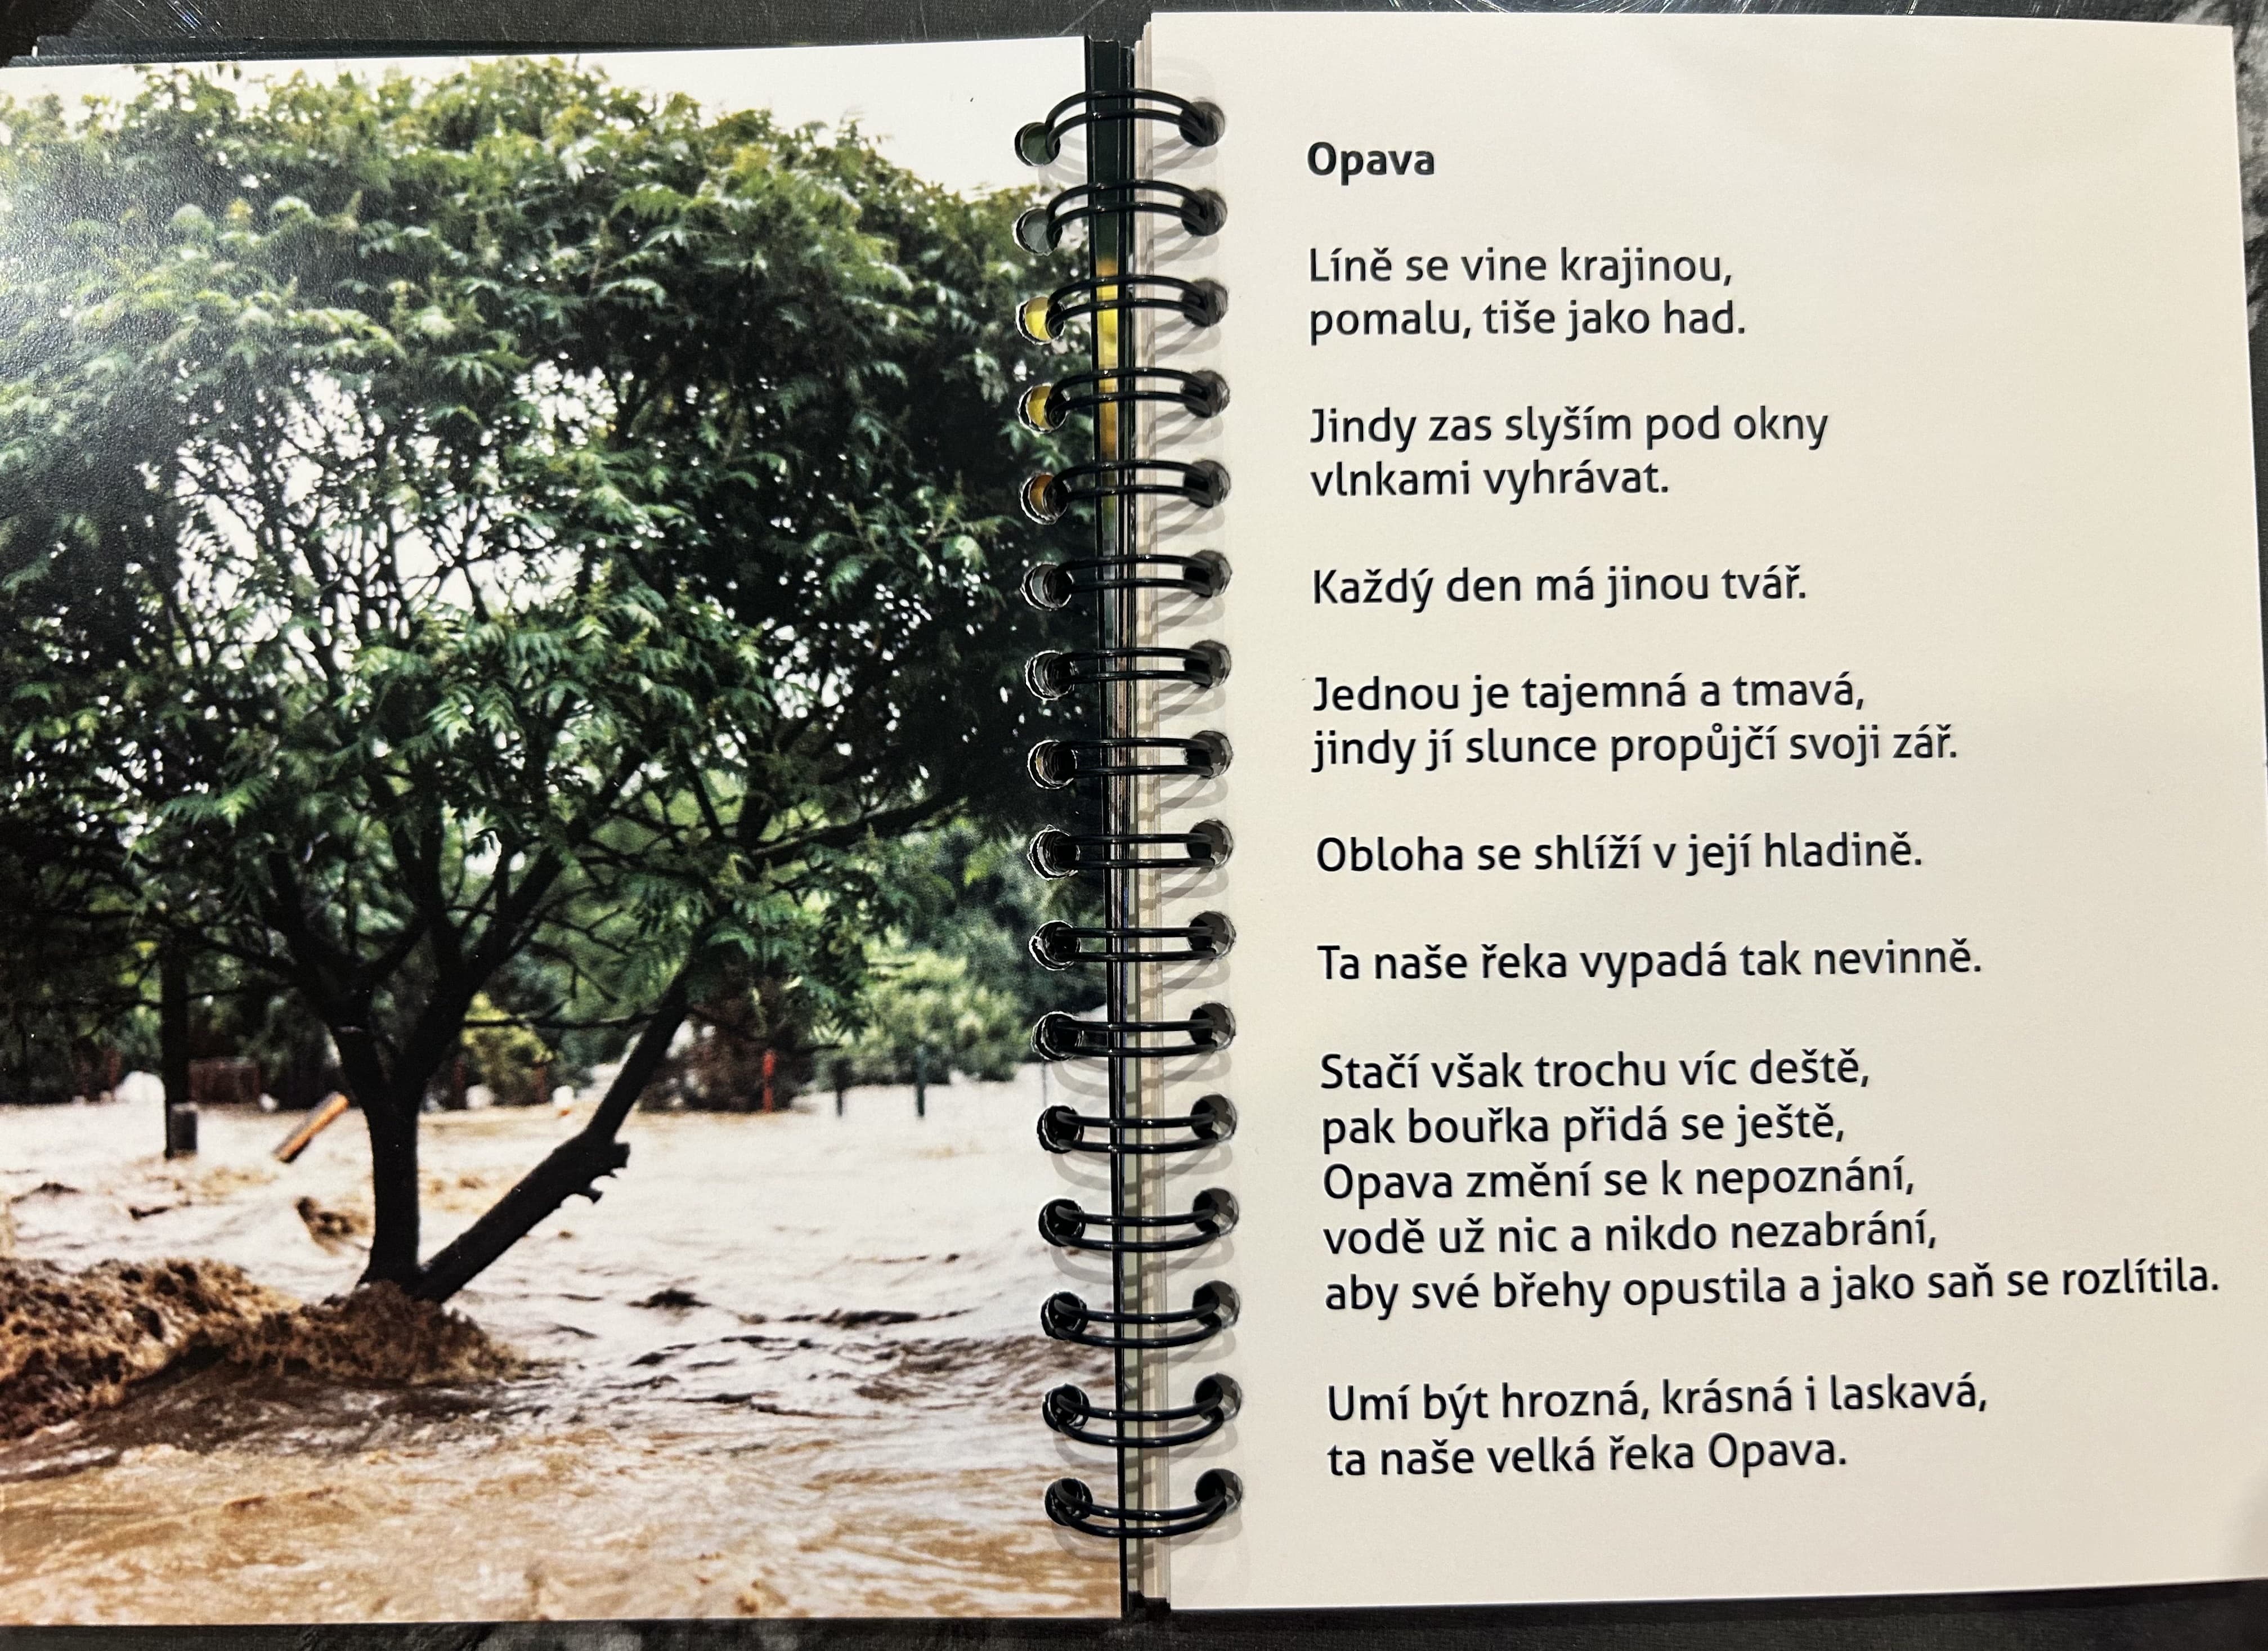 Opava
Líně se vine krajinou,
pomalu, tiše jako had.
Jindy zas slyším pod okny
vlnkami vyhrávat.
Každý den má jinou tvář.
Jednou je tajemná a tmavá,
jindy jí slunce propůjčí svoji zář.
Obloha se shlíží v její hladině.
Ta naše řeka vypadá tak nevinně.
Stačí však trochu víc deště,
pak bouřka přidá se ještě,
Opava změní se k nepoznání,
vodě už nic a nikdo nezabrání,
aby své břehy opustila a jako saň se rozlítila.
Umí být hrozná, krásná i laskavá,
ta naše velká řeka Opava.